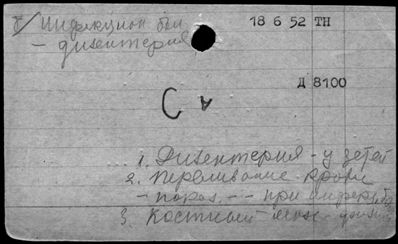 б/ Инфекцион бол
— дизентерия
18 6 52 ТН
Д 8100
С а
1. Дизентерия - у детей
2. Переливание крови
— пораз. -- при
3. Костный мозг